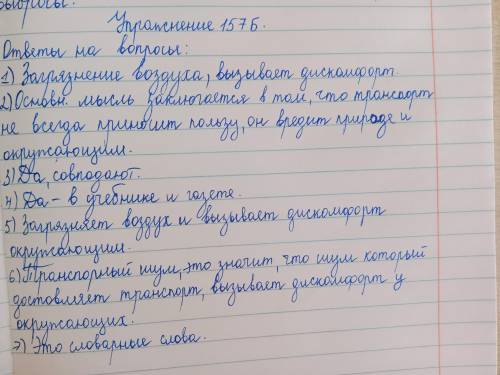 вопросы.
Упражнение 157Б.
Ответы на вопросы:
1) Загрязнение воздуха, вызывает дискомфорт.
2) Основн. мысль заключается в том, что транспорт
не всегда приносит пользу, он вредит природе и
окружающим.
3) Да, совпадают.
4) Да - в учебнике и газете.
5) Загрязняет воздух и вызывает дискомфорт
окружающим.
6) Транспорный шум, это значит, что шум который
доставляет транспорт, вызывает дискомфорт у
окружающих.
7) Это словарные слова.